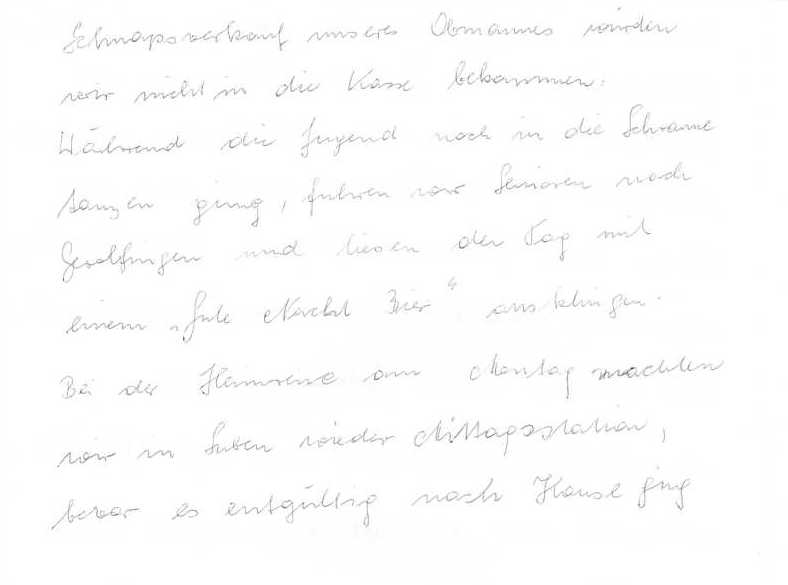 Schnapsverkauf unseres Obmannes würden
wir nicht in die Kasse bekommen.
Während die Jugend noch in die Schranne
tanzen ging, fuhren wir Senioren nach
Gerolfingen und liesen den Tag mit
einem „Gute Nacht Bier" ausklingen.
Bei der Heimreise am Montag machten
wir in Suben wieder Mittagsstation,
bevor es entgültig nach Hause ging